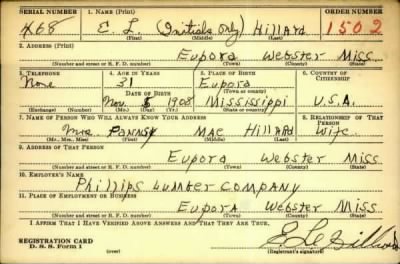 SERIAL NUMBER 1. NAME (Print) ORDER NUMBER
X68 E. L. (Initials Only) Hillard 1502
(First) (Middle) (Last)
2. ADDRESS (Print)
Eupora Webster Miss.
(Number and street or R. F. D. number) (Town) (County) (State)
3. TELEPHONE 4. AGE IN YEARS 5. PLACE OF BIRTH 6. COUNTRY OF CITIZENSHIP
None 31 Eupora
DATE OF BIRTH (Town or county)
Nov. 1908 Mississippi U.S.A.
(Exchange) (Number) (Mo.) (Day) (Yr.) (State or country)
7. NAME OF PERSON WHO WILL ALWAYS KNOW YOUR ADDRESS 8. RELATIONSHIP OF THAT PERSON
Mrs Mae Hillard Wife
(Mr., Mrs., Miss) (First) (Middle) (Last)
9. ADDRESS OF THAT PERSON
Eupora Webster Miss
(Number and street or R. F. D. number) (Town) (County) (State)
10. EMPLOYER'S NAME
Phillips Lumber Company
11. PLACE OF EMPLOYMENT OR BUSINESS
Eupora Webster Miss
(Number and street or R. F. D. number) (Town) (County) (State)
I AFFIRM THAT I HAVE VERIFIED ABOVE ANSWERS AND THAT THEY ARE TRUE.
REGISTRATION CARD
D. S. S. Form 1 (Registrant's signature)